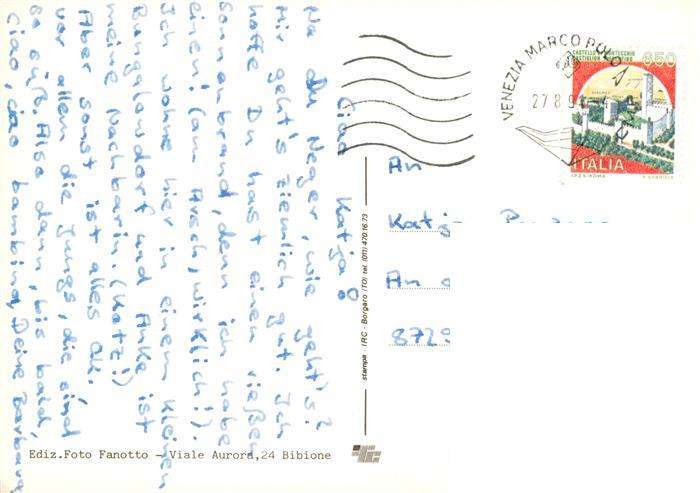 Ciao Katja!
Na du Neger, wie geht's?
Mir geht's ziemlich gut. Ich
hoffe Du hast einen riesen
Sonnenbrand, denn ich habe
einen! (am Arsch, wirklich!).
Ich wohne hier in einem kleinen
Bungalowdorf und Anke ist
meine Nachbarin. (Kotz!)
Aber sonst ist alles ok.
vor allem die Jungs, die sind
so süß. Also dann, bis bald,
Ciao, ciao bambina, Deine Barbara
Ediz.Foto Fanotto - Viale Aurora,24 Bibione
stampa IRC - Borgaro (TO) tel. (011) 470.16.73
VENEZIA MARCO POLO
27 8 9
CASTELLO DI MONTECCHIO
CASTIGLION FIORENTINO
650
ITALIA
I.P.Z.S. ROMA
An
Katja
An
8729